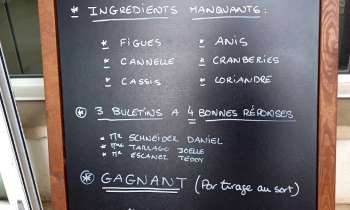 * INGREDIENTS MANQUANTS :
* FIGUES * ANIS
* CANNELLE * CRANBERIES
* CASSIS * CORIANDRE
* 3 BULETINS A 4 BONNES RÉPONSES
* Mr SCHNEIDER DANIEL
* Mme TARLAGO JOELLE
* Mr ESCANEZ TEDDY
* GAGNANT (Par tirage au sort)